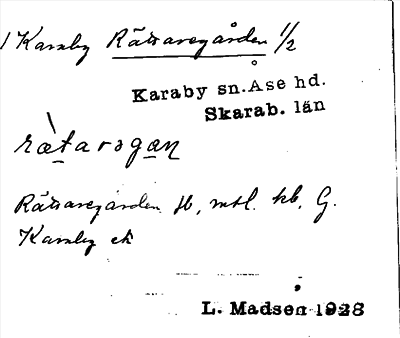 1 Karaby Rättaregården 1/2
Karaby sn. Åse hd.
Skarab. län
rætarəgan
Rättaregården Jb, mtl. kb, G.
Karaby ek
L. Madsen 1928